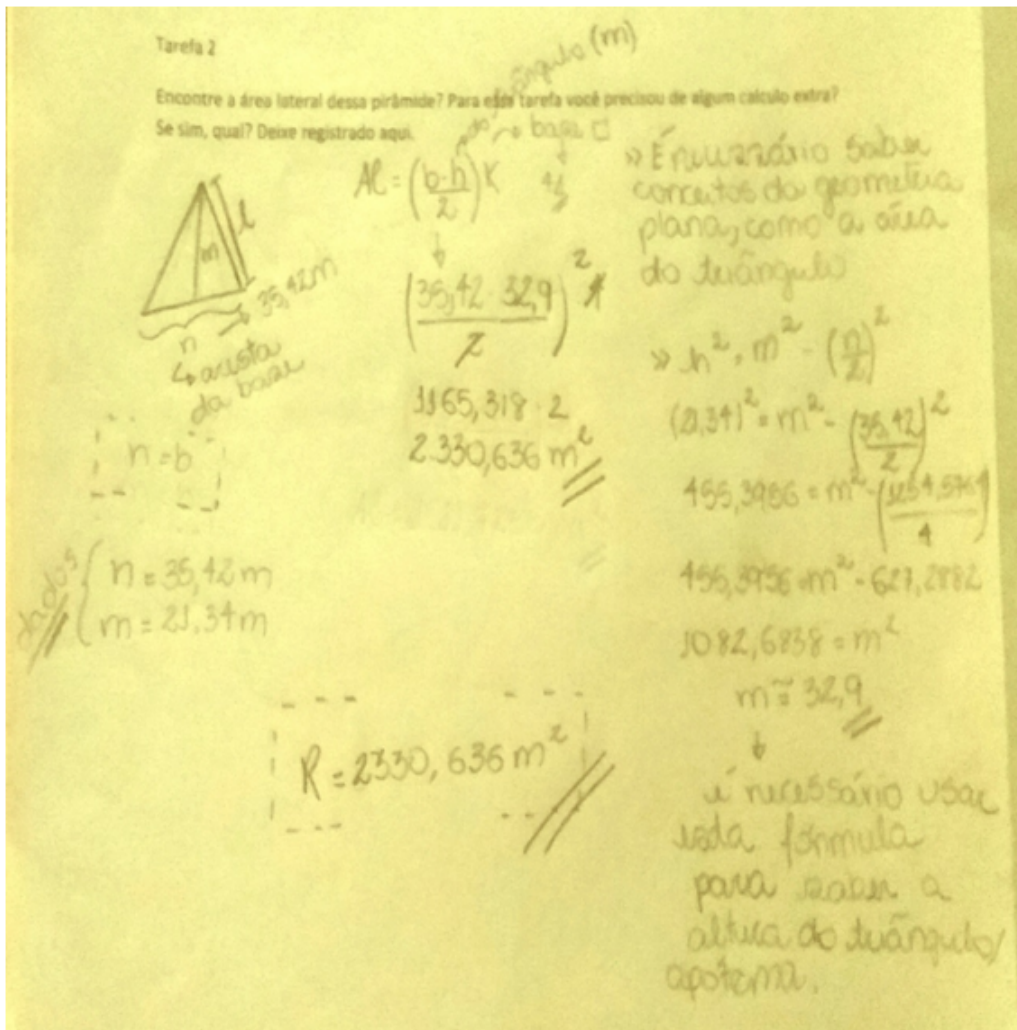 Tarefa 2
Encontre a área lateral dessa pirâmide? Para essa tarefa você precisou de algum calculo extra?
Se sim, qual? Deixe registrado aqui.
do triângulo (m)
→ base □
Al = (b·h/2) K
4
(35,42 · 32,9 / 2)² 4
1165,318 · 2
2.330,636 m²
l
m
n → 35,42m
↳ aresta
da base
n = b
dados
n = 35,42m
m = 21,34m
R = 2330,636 m²
» É necessário saber
conceitos da geometria
plana, como a área
do triângulo
» h² = m² - (n/2)²
(21,34)² = m² - (35,42/2)²
455,3956 = m² - (1254,5764/4)
455,3956 = m² - 627,2882
1082,6838 = m²
m ≅ 32,9
é necessário usar
esta fórmula
para saber a
altura do triângulo/
apótema.